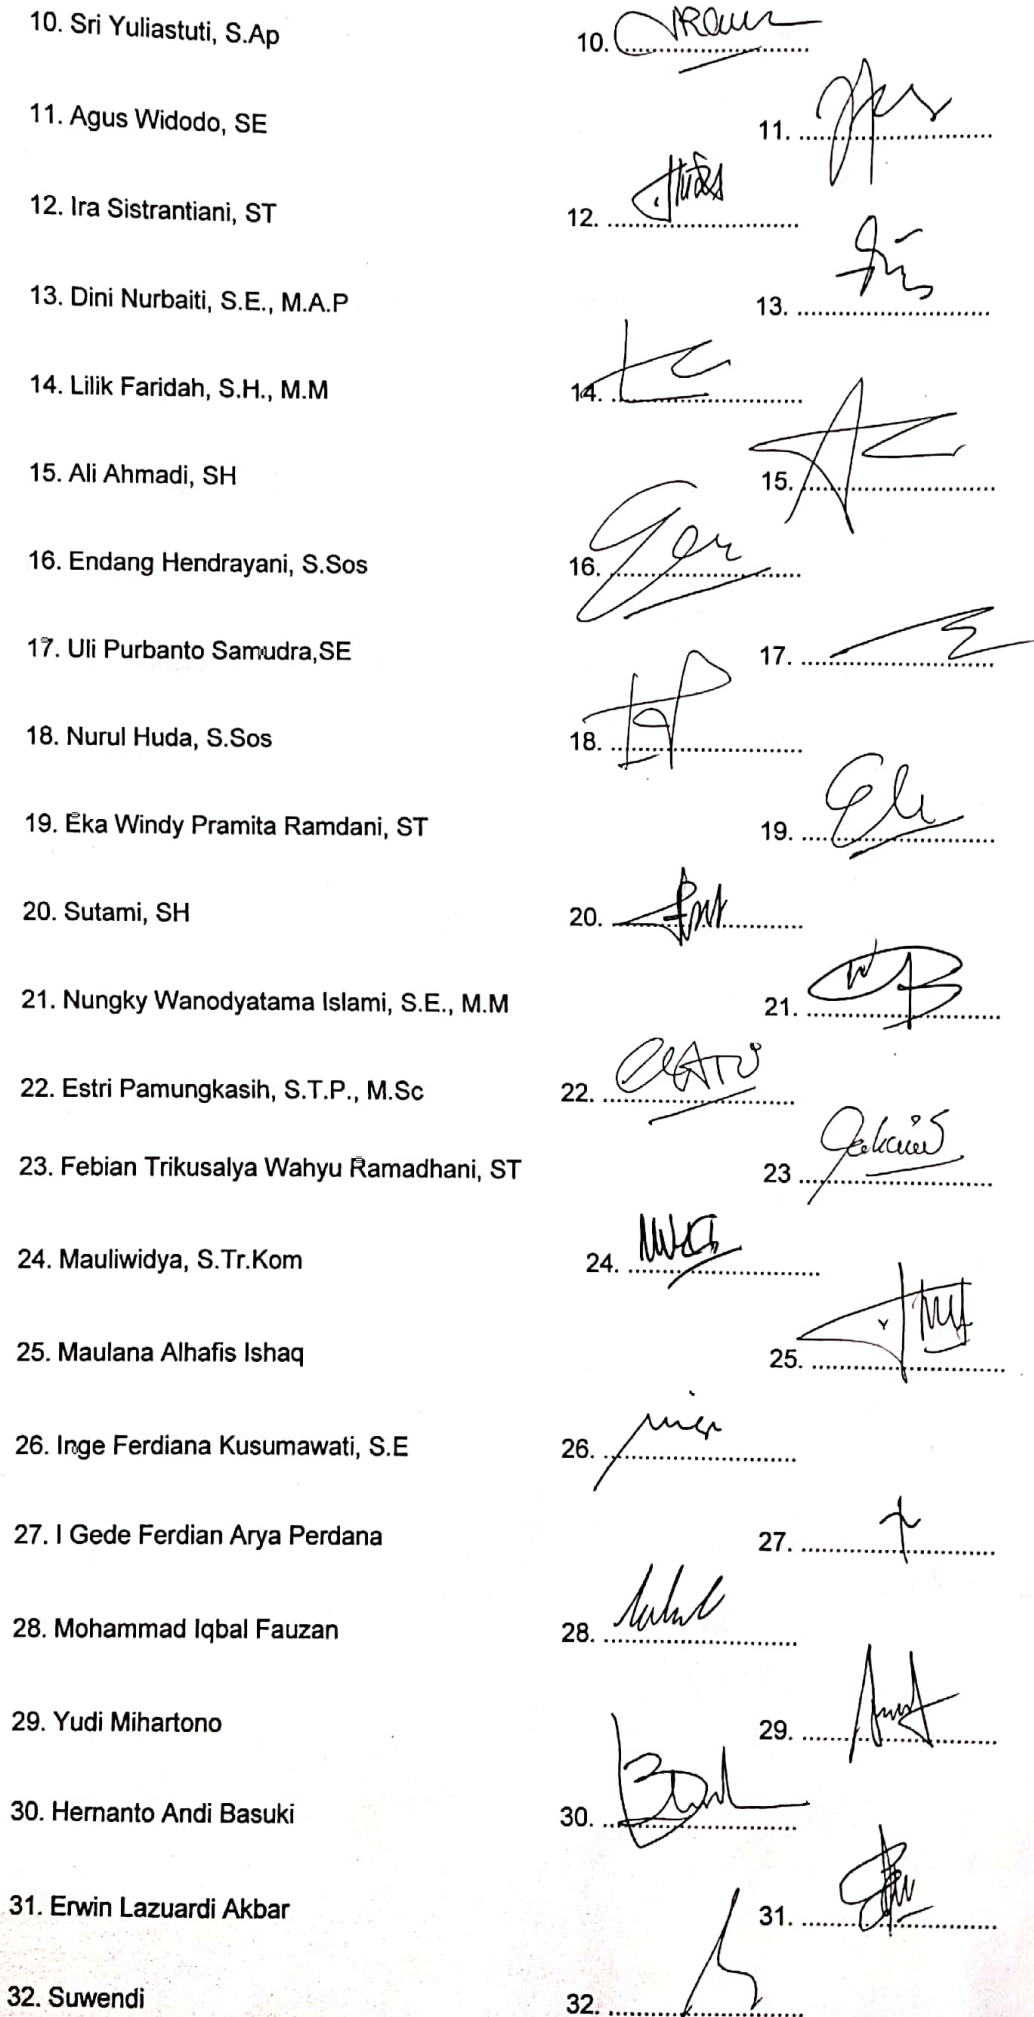 10. Sri Yuliastuti, S.Ap 10. ........
11. Agus Widodo, SE 11. ........
12. Ira Sistrantiani, ST 12. ........
13. Dini Nurbaiti, S.E., M.A.P 13. ........
14. Lilik Faridah, S.H., M.M 14. ........
15. Ali Ahmadi, SH 15. ........
16. Endang Hendrayani, S.Sos 16. ........
17. Uli Purbanto Samudra,SE 17. ........
18. Nurul Huda, S.Sos 18. ........
19. Eka Windy Pramita Ramdani, ST 19. ........
20. Sutami, SH 20. ........
21. Nungky Wanodyatama Islami, S.E., M.M 21. ........
22. Estri Pamungkasih, S.T.P., M.Sc 22. ........
23. Febian Trikusalya Wahyu Ramadhani, ST 23 ........
24. Mauliwidya, S.Tr.Kom 24. ........
25. Maulana Alhafis Ishaq 25. ........
26. Inge Ferdiana Kusumawati, S.E 26. ........
27. I Gede Ferdian Arya Perdana 27. ........
28. Mohammad Iqbal Fauzan 28. ........
29. Yudi Mihartono 29. ........
30. Hernanto Andi Basuki 30. ........
31. Erwin Lazuardi Akbar 31. ........
32. Suwendi 32. ........